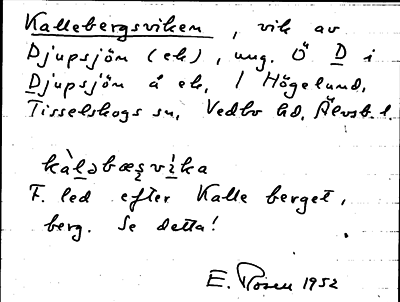 Kallebergsviken, vik av
Djupsjön (ek), ung. Ö D i
Djupsjön å ek, / Högelund,
Tisselskogs sn, Vedbo hd, Älvsb. l.
kàlabæṣvika
F. led efter Kalleberget,
berg. Se detta!
E. Rosen 1952